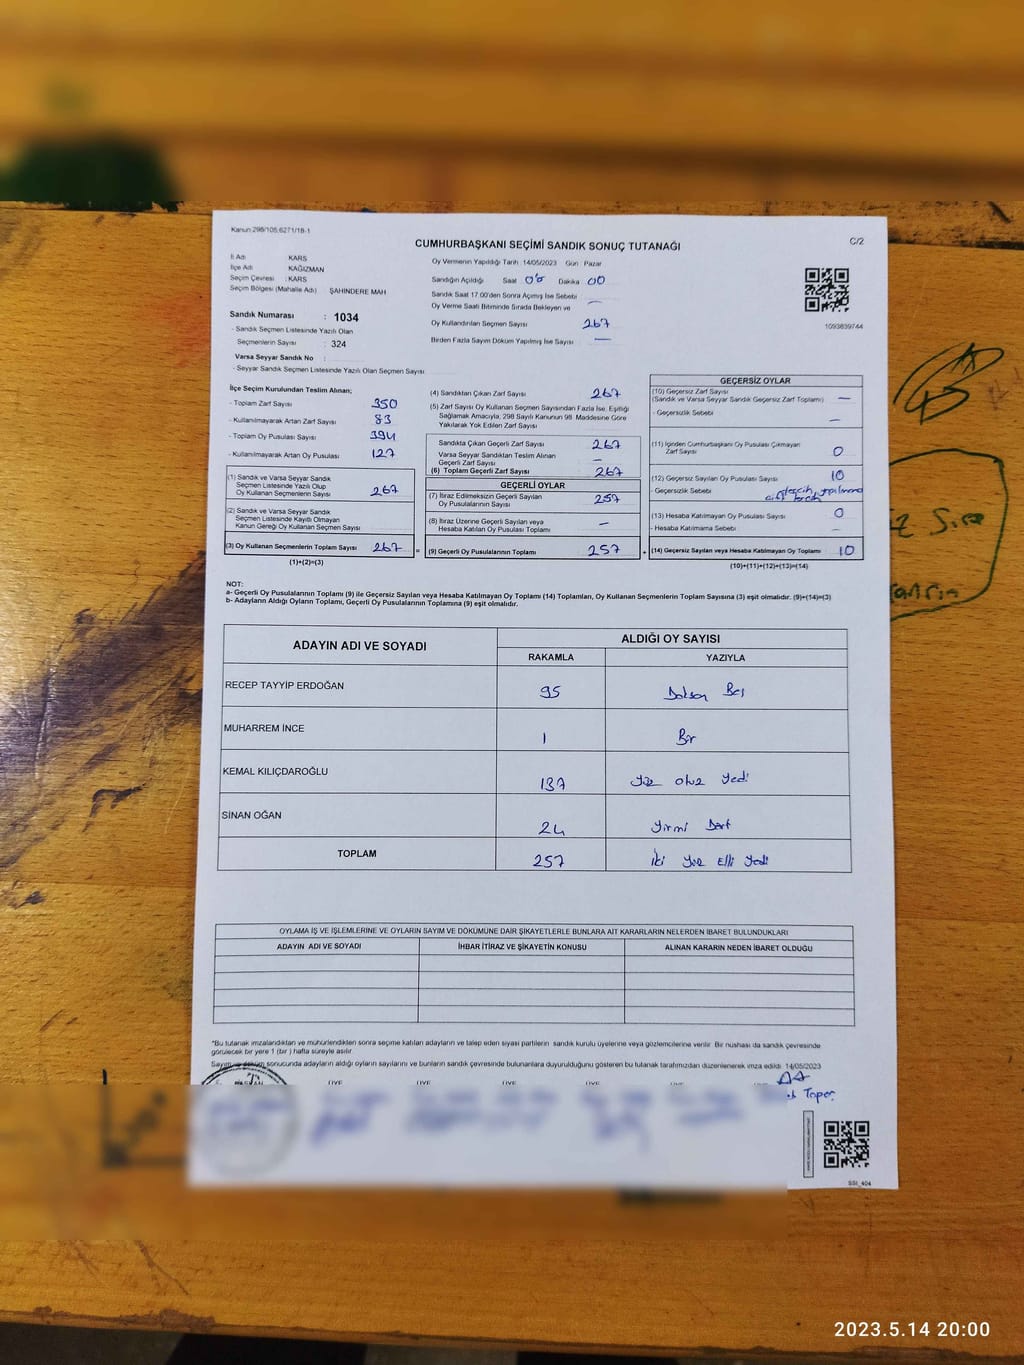 Kanun 298/105,6271/18-1
C/2
CUMHURBAŞKANI SEÇİMİ SANDIK SONUÇ TUTANAĞI
İl Adı KARS
İlçe Adı KAĞIZMAN
Seçim Çevresi : KARS
Seçim Bölgesi (Mahalle Adı) ŞAHİNDERE MAH
Sandık Numarası : 1034
- Sandık Seçmen Listesinde Yazılı Olan
Seçmenlerin Sayısı : 324
Varsa Seyyar Sandık No :
- Seyyar Sandık Seçmen Listesinde Yazılı Olan Seçmen Sayısı
Oy Vermenin Yapıldığı Tarih : 14/05/2023 Gün : Pazar
Sandığın Açıldığı Saat Dakika 00
Sandık Saat 17:00'den Sonra Açımış İse Sebebi
Oy Verme Saati Bitiminde Sırada Bekleyen ve —
Oy Kullandırılan Seçmen Sayısı 267
Birden Fazla Sayım Döküm Yapılmış İse Sayısı —
1093839744
İlçe Seçim Kurulundan Teslim Alınan;
- Toplam Zarf Sayısı 350
- Kullanılmayarak Artan Zarf Sayısı 83
- Toplam Oy Pusulası Sayısı 394
- Kullanılmayarak Artan Oy Pusulası 127
(1) Sandık ve Varsa Seyyar Sandık
Seçmen Listesinde Yazılı Olup
Oy Kullanan Seçmenlerin Sayısı 267
(2) Sandık ve Varsa Seyyar Sandık
Seçmen Listesinde Kayıtlı Olmayan
Kanun Gereği Oy Kullanan Seçmen Sayısı
(3) Oy Kullanan Seçmenlerin Toplam Sayısı 267 =
(1)+(2)=(3)
(4) Sandıktan Çıkan Zarf Sayısı 267
(5) Zarf Sayısı Oy Kullanan Seçmen Sayısından Fazla İse, Eşitliği
Sağlamak Amacıyla, 298 Sayılı Kanunun 98. Maddesine Göre
Yakılarak Yok Edilen Zarf Sayısı
Sandıkta Çıkan Geçerli Zarf Sayısı 267
Varsa Seyyar Sandıktan Teslim Alınan
Geçerli Zarf Sayısı —
(6) Toplam Geçerli Zarf Sayısı 267
GEÇERLİ OYLAR
(7) İtiraz Edilmeksizin Geçerli Sayılan
Oy Pusulalarının Sayısı 257
(8) İtiraz Üzerine Geçerli Sayılan veya
Hesaba Katılan Oy Pusulası Toplamı —
(9) Geçerli Oy Pusulalarının Toplamı 257 +
GEÇERSİZ OYLAR
(10) Geçersiz Zarf Sayısı
(Sandık ve Varsa Seyyar Sandık Geçersiz Zarf Toplamı) —
- Geçersizlik Sebebi —
(11) İçinden Cumhurbaşkanı Oy Pusulası Çıkmayan
Zarf Sayısı 0
(12) Geçersiz Sayılan Oy Pusulası Sayısı 10
- Geçersizlik Sebebi
(13) Hesaba Katılmayan Oy Pusulası Sayısı 0
- Hesaba Katılmama Sebebi —
(14) Geçersiz Sayılan veya Hesaba Katılmayan Oy Toplamı 10
(10)+(11)+(12)+(13)=(14)
NOT:
a- Geçerli Oy Pusulalarının Toplamı (9) ile Geçersiz Sayılan veya Hesaba Katılmayan Oy Toplamı (14) Toplamları, Oy Kullanan Seçmenlerin Toplam Sayısına (3) eşit olmalıdır. (9)+(14)=(3)
b- Adayların Aldığı Oyların Toplamı, Geçerli Oy Pusulalarının Toplamına (9) eşit olmalıdır.
ADAYIN ADI VE SOYADI ALDIĞI OY SAYISI
RAKAMLA YAZIYLA
RECEP TAYYİP ERDOĞAN 95 Doksan Beş
MUHARREM İNCE 1 Bir
KEMAL KILIÇDAROĞLU 137 yüz otuz yedi
SİNAN OĞAN 24 yirmi Dört
TOPLAM 257 iki yüz Elli yedi
OYLAMA İŞ VE İŞLEMLERİNE VE OYLARIN SAYIM VE DÖKÜMÜNE DAİR ŞİKAYETLERLE BUNLARA AİT KARARLARIN NELERDEN İBARET BULUNDUKLARI
ADAYIN ADI VE SOYADI İHBAR İTİRAZ VE ŞİKAYETİN KONUSU ALINAN KARARIN NEDEN İBARET OLDUĞU
*Bu tutanak imzalandıktan ve mühürlendikten sonra seçime katılan adayların ve talep eden siyasi partilerin sandık kurulu üyelerine veya gözlemcilerine verilir. Bir nüshası da sandık çevresinde
görülecek bir yere 1 (bir ) hafta süreyle asılır.
Sayım ve döküm sonucunda adayların aldığı oyların sayılarını ve bunların sandık çevresinde bulunanlara duyurulduğunu gösteren bu tutanak tarafımızdan düzenlenerek imza edildi. 14/05/2023
ÜYE ÜYE ÜYE ÜYE ÜYE
SSI_404
2023.5.14 20:00